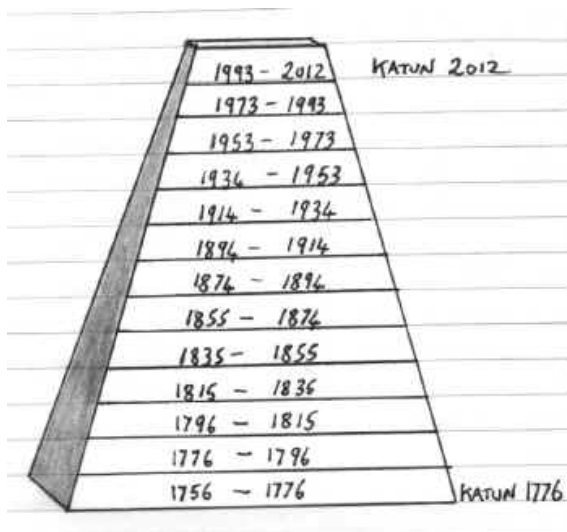 1993 - 2012 KATUN 2012
1973 - 1993
1953 - 1973
1934 - 1953
1914 - 1934
1894 - 1914
1874 - 1894
1855 - 1874
1835 - 1855
1815 - 1835
1796 - 1815
1776 - 1796
1756 - 1776 KATUN 1776